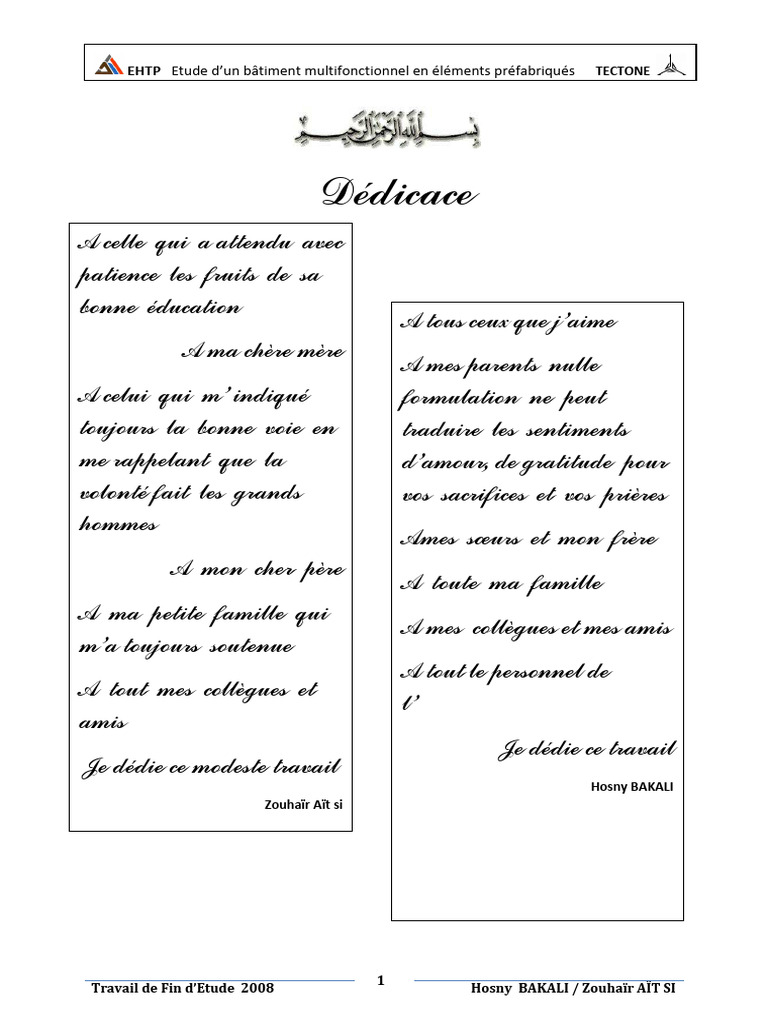 EHTP Etude d'un bâtiment multifonctionnel en éléments préfabriqués TECTONE
بِسْمِ اللَّهِ الرَّحْمَٰنِ الرَّحِيمِ
Dédicace
A celle qui a attendu avec
patience les fruits de sa
bonne éducation
A ma chère mère
A celui qui m'indiqué
toujours la bonne voie en
me rappelant que la
volonté fait les grands
hommes
A mon cher père
A ma petite famille qui
m'a toujours soutenue
A tout mes collègues et
amis
Je dédie ce modeste travail
Zouhaïr Aït si
A tous ceux que j'aime
A mes parents nulle
formulation ne peut
traduire les sentiments
d'amour, de gratitude pour
vos sacrifices et vos prières
Ames sœurs et mon frère
A toute ma famille
A mes collègues et mes amis
A tout le personnel de
l'
Je dédie ce travail
Hosny BAKALI
Travail de Fin d'Etude 2008 1 Hosny BAKALI / Zouhaïr AÏT SI